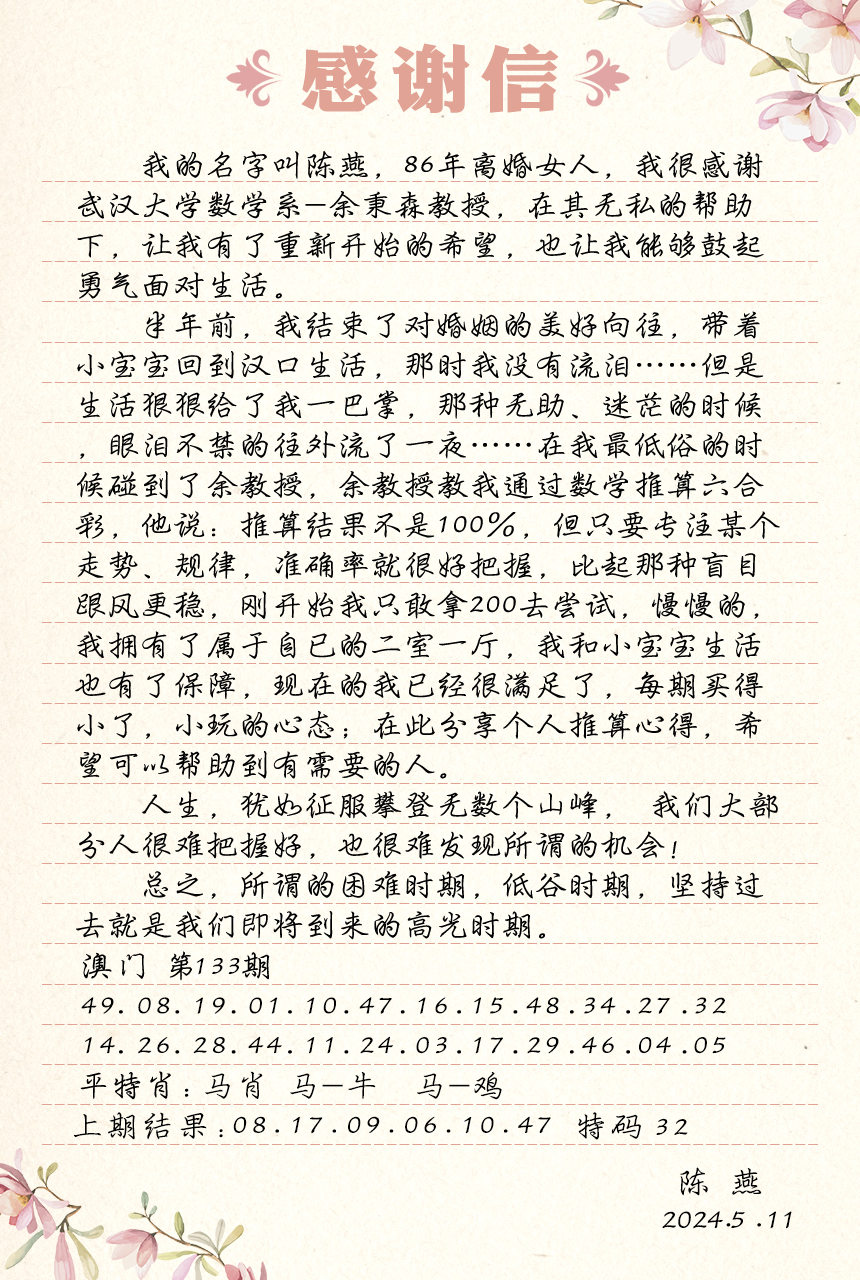 感谢信
我的名字叫陈燕，86年离婚女人，我很感谢
武汉大学数学系—余秉森教授，在其无私的帮助
下，让我有了重新开始的希望，也让我能够鼓起
勇气面对生活。
半年前，我结束了对婚姻的美好向往，带着
小宝宝回到汉口生活，那时我没有流泪……但是
生活狠狠给了我一巴掌，那种无助、迷茫的时候
，眼泪不禁的往外流了一夜……在我最低俗的时
候碰到了余教授，余教授教我通过数学推算六合
彩，他说：推算结果不是100%，但只要专注某个
走势、规律，准确率就很好把握，比起那种盲目
跟风更稳，刚开始我只敢拿200去尝试，慢慢的，
我拥有了属于自己的二室一厅，我和小宝宝生活
也有了保障，现在的我已经很满足了，每期买得
小了，小玩的心态；在此分享个人推算心得，希
望可以帮助到有需要的人。
人生，犹如征服攀登无数个山峰， 我们大部
分人很难把握好，也很难发现所谓的机会！
总之，所谓的困难时期，低谷时期，坚持过
去就是我们即将到来的高光时期。
澳门 第133期
49.08.19.01.10.47.16.15.48.34.27.32
14.26.28.44.11.24.03.17.29.46.04.05
平特肖：马肖 马—牛 马—鸡
上期结果：08.17.09.06.10.47 特码 32
陈 燕
2024.5.11